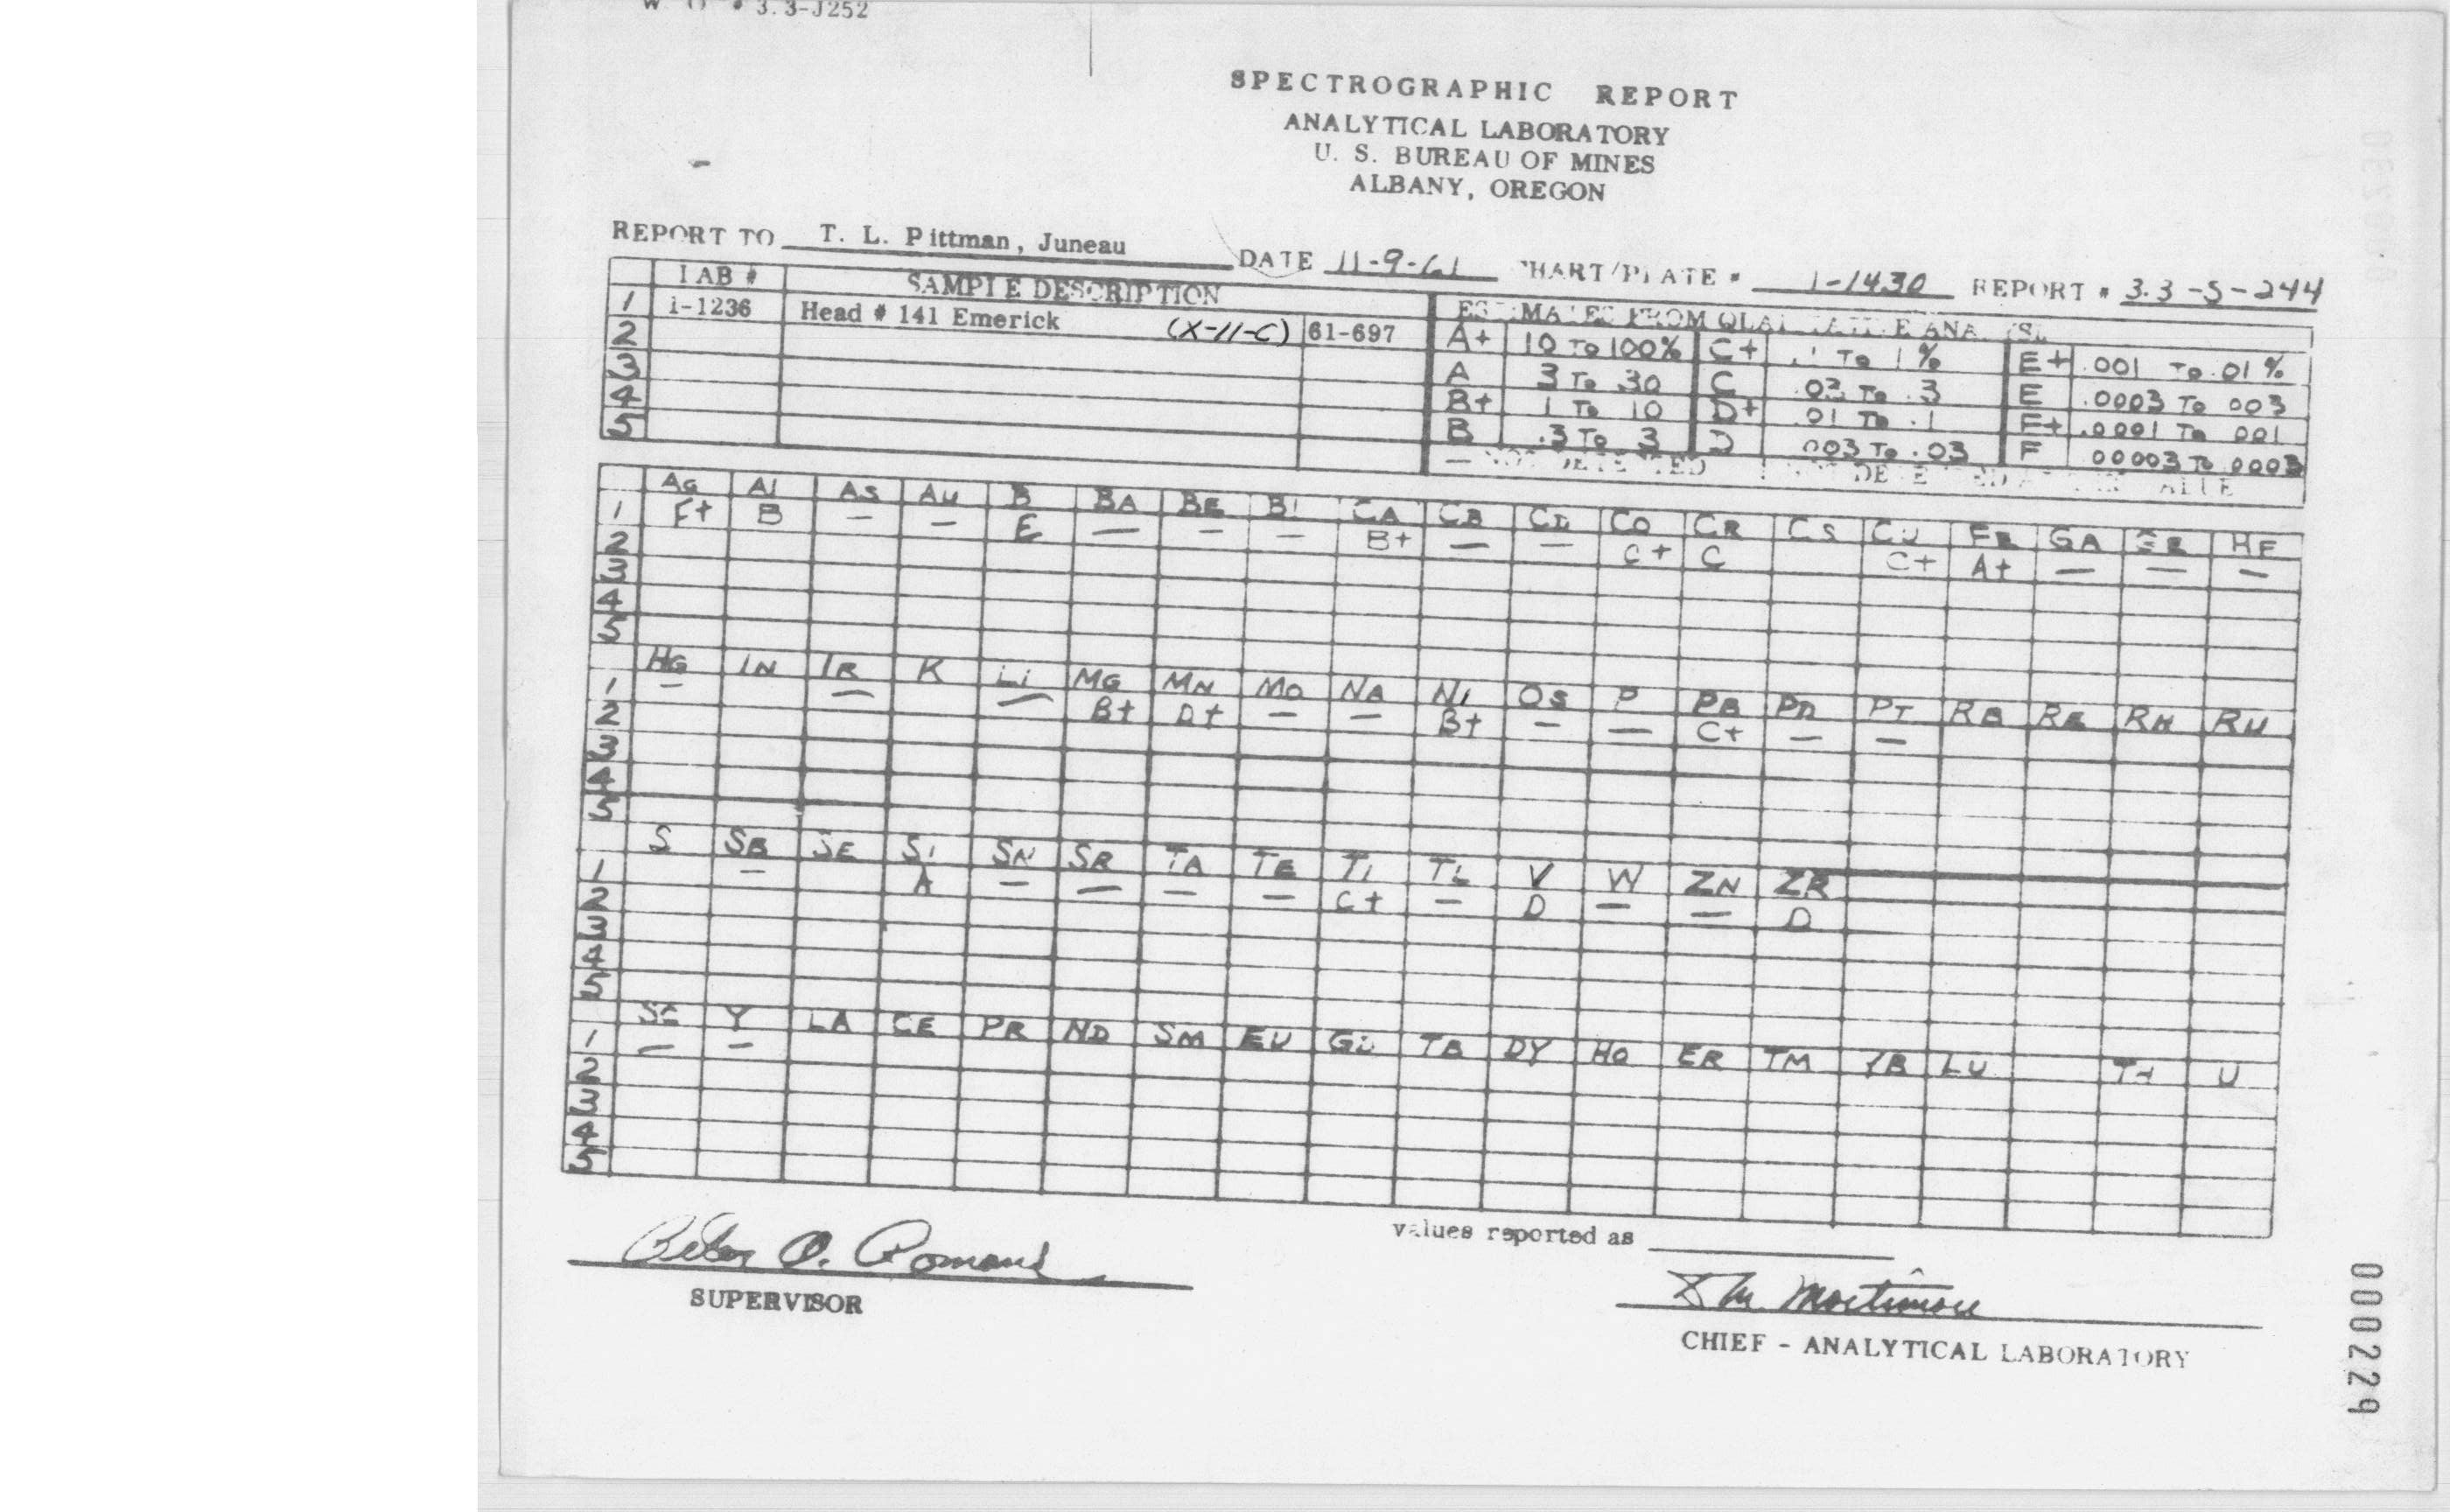 W O # 3.3-J252
SPECTROGRAPHIC REPORT
ANALYTICAL LABORATORY
U. S. BUREAU OF MINES
ALBANY, OREGON
REPORT TO T. L. Pittman, Juneau DATE 11-9-61 CHART/PLATE # 1-1430 REPORT # 3.3-S-244
LAB # SAMPLE DESCRIPTION
1 1-1236 Head # 141 Emerick (X-11-C) 61-697
2
3
4
5
ESTIMATES FROM QUALITATIVE ANALYSIS
A+ 10 To 100% C+ .1 To 1% E+ .001 To .01%
A 3 To 30 C .03 To .3 E .0003 To 003
B+ 1 To 10 D+ .01 To .1 F+ .0001 To 001
B .3 To 3 D 003 To .03 F 00003 To 0003
— NOT DETECTED
AG AL AS AU B BA BE BI CA CB CD CO CR CS CU FE GA GE HF
1 E+ B — — E — — — B+ — — C+ C C+ A+ — — —
2
3
4
5
HG IN IR K LI MG MN MO NA NI OS P PB PD PT RB RE RH RU
1 — — — B+ D+ — — B+ — — C+ — —
2
3
4
5
S SB SE SI SN SR TA TE TI TL V W ZN ZR
1 — A — — — — C+ — D — — D
2
3
4
5
SC Y LA CE PR ND SM EU GD TB DY HO ER TM YB LU TH U
1 — —
2
3
4
5
values reported as
SUPERVISOR
Mortimore
CHIEF - ANALYTICAL LABORATORY
000229